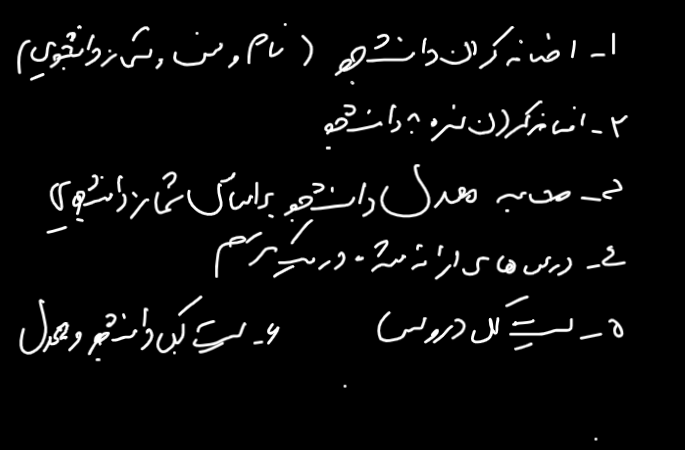 ۱- اضافه کردن دانشجو (نام و سن و شماره دانشجویی)
۲- اضافه کردن نمره به دانشجو
۳- محاسبه معدل دانشجو براساس شماره دانشجویی
٤- درس های ارائه شده در یک ترم
۵- لیست کل دروس ۶- لیست کل دانشجو و معدل